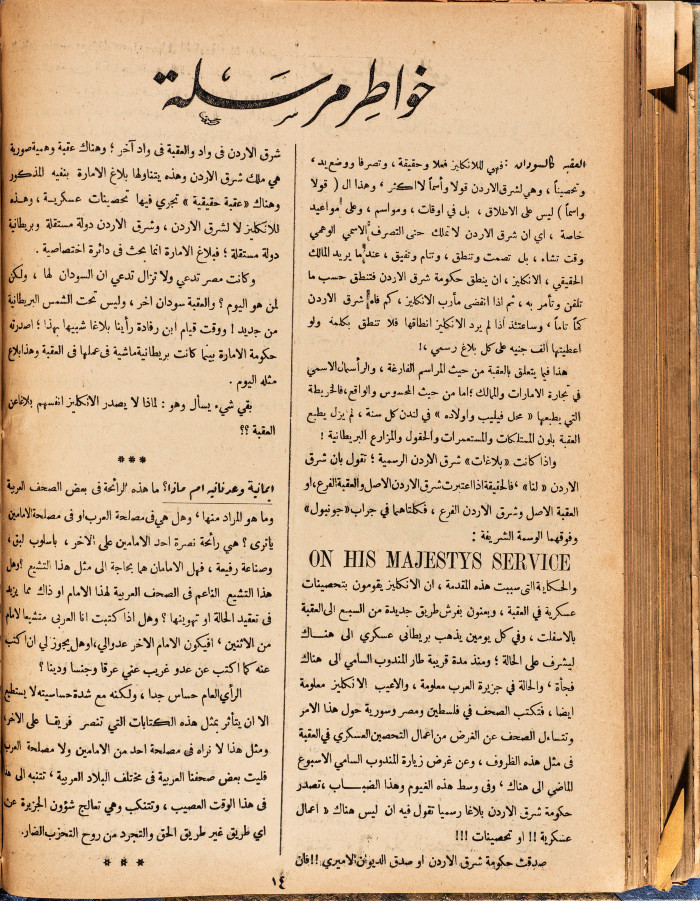 خواطر مرسلة
العقبة كالسودان : فهي للانكليز فعلا وحقيقة ، وتصرفا ووضع يد ،
وتحصيناً ، وهي لشرق الاردن قولا وأسماً لا اكثر ، وهذا ال ( قولا
واسماً ) ليس على الاطلاق ، بل في اوقات ، ومواسم ، وعلى مواعيد
خاصة ، اي ان شرق الاردن لا تملك حتى التصرف الاسمي الوهمي
وقت تشاء ، بل تصمت وتنطق ، وتنام وتفيق ، عند ما يريد المالك
الحقيقي ، الانكليز ، ان ينطق حكومة شرق الاردن فتنطق حسب ما
تلقن وتأمر به ، ثم اذا انقضى مأرب الانكليز ، كم فاه شرق الاردن
كماً تاماً ، وساعتئذ اذا لم يرد الانكليز انطاقها فلا تنطق بكلمة ولو
اعطيتها الف جنيه على كل بلاغ رسمي ،!
هذا فيما يتعلق بالعقبة من حيث المراسم الفارغة ، والرأسمال الاسمي
في تجارة الامارات والممالك ؛ اما من حيث المحسوس والواقع ، فالخريطة
التي يطبعها « محل فيليب واولاده » في لندن كل سنة ، لم يزل يطبع
العقبة بلون الممتلكات والمستعمرات والحقول والمزارع البريطانية !
واذا كانت « بلاغات » شرق الاردن الرسمية ؛ تقول بان شرق
الاردن « لنا » ، فالحقيقة اذا اعتبرت شرق الاردن الاصل والعقبة الفرع ، او
العقبة الاصل وشرق الاردن الفرع ، فكلتاهما في جراب « جونبول »
وفوقهما الوسمة الشريفة :
ON HIS MAJESTYS SERVICE
والحكاية التي سببت هذه المقدمة ، ان الانكليز يقومون بتحصينات
عسكرية في العقبة ، ويعنون بفرش طريق جديدة من السبع الى العقبة
بالاسفلت ، وفي كل يومين يذهب بريطاني عسكري الى هنـاك
ليشرف على الحالة ؛ ومنذ مدة قريبة طار المندوب السامي الى هناك
فجأة ، والحالة في جزيرة العرب معلومة ، والاعيب الانكليز معلومة
ايضا ، فتكتب الصحف في فلسطين ومصر وسورية حول هذا الامر
وتتساءل الصحف عن الغرض من اعمال التحصين العسكري في العقبة
في مثل هذه الظروف ، وعن غرض زيارة المندوب السامي الاسبوع
الماضي الى هناك ، وفي وسط هذه الغيوم وهذا الضبـاب ، تصدر
حكومة شرق الاردن بلاغا رسميا تقول فيه ان ليس هناك « اعمال
عسكرية !! او تحصينات !!!
صدقت حكومة شرق الاردن او صدق الديوان الاميري !! فان
شرق الاردن في واد والعقبة في واد آخر ؛ وهناك عقبة وهمية صورية
هي ملك شرق الاردن وهذه يتناولها بلاغ الامارة بنفيه المذكور
وهناك « عقبة حقيقية » تجري فيها تحصينات عسكريـة ، وهذه
للانكليز لا لشرق الاردن ، وشرق الاردن دولة مستقلة وبريطانية
دولة مستقلة ؛ فبلاغ الامارة انما بحث في دائرة اختصاصية .
وكانت مصر تدعي ولا تزال تدعي ان السودان لها ، ولكن
لمن هو اليوم ؟ والعقبة سودان اخر ، وليس تحت الشمس البريطانية
من جديد ! ووقت قيام ابن رفادة رأينا بلاغا شبيها بهذا ؛ اصدرته
حكومة الامارة بينما كانت بريطانية ماشية في عملها في العقبة وهذا بلاغ
مثله اليوم .
بقي شيء يسأل وهو : لماذا لا يصدر الانكليز انفسهم بلاغا عن
العقبة ؟؟
***
ايمانية وعدنانية ام ماذا ؟ ما هذه الرائحة في بعض الصحف العربية
وما هو المراد منها ، وهل هي في مصلحة العرب او في مصلحة الامامين
ياترى ؟ هي رائحة نصرة احد الامامين على الآخر ، باسلوب لبق ،
وصناعة رفيعة ، فهل الامامان هما بحاجة الى مثل هذا التشيع ؟ وهل
هذا التشيع الناعم في الصحف العربية لهذا الامام او ذاك مما يزيد
في تعقيد الحالة او تهوينها ؟ وهل اذا كتبت انا العربي متشيعا لامام
من الاثنين ، افيكون الامام الاخر عدوا لي ، او هل يجوز لي ان اكتب
عنه كما اكتب عن عدو غريب عني عرقا وجنسا ودينا ؟
الرأي العام حساس جدا ، ولكنه مع شدة حساسيته لا يستطيع
الا ان يتأثر بمثل هذه الكتابات التي تنصر فريقـا على الآخر ،
ومثل هذا لا نراه في مصلحة احد من الامامين ولا مصلحة العرب
فليت بعض صحفنا العربية في مختلف البلاد العربية ، تتنبه الى هذا
في هذا الوقت العصيب ، وتتنكب وهي تعالج شؤون الجزيرة عن
اي طريق غير طريق الحق والتجرد من روح التحزب الضار .
* * *
١٤